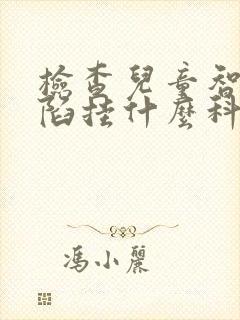 檢查兒童智
陷挂什麼科
馮小麗